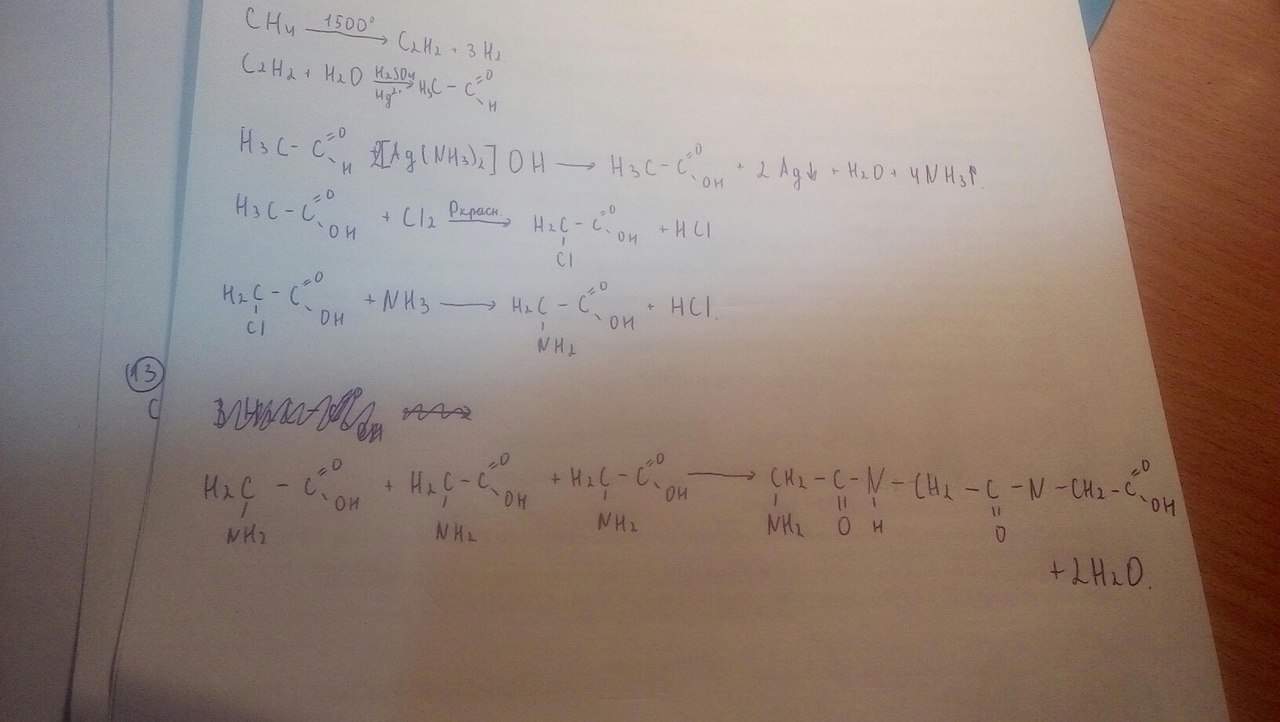 CH4 —1500°→ C2H2 + 3H2
C2H2 + H2O —H2SO4, Hg2+→ H3C-C(=O)-H
H3C-C(=O)-H + 2[Ag(NH3)2]OH → H3C-C(=O)-OH + 2Ag↓ + H2O + 4NH3↑.
H3C-C(=O)-OH + Cl2 —Pкрасн.→ H2C(Cl)-C(=O)-OH + HCl
H2C(Cl)-C(=O)-OH + NH3 → H2C(NH2)-C(=O)-OH + HCl.
13
C
H2C(NH2)-C(=O)-OH + H2C(NH2)-C(=O)-OH + H2C(NH2)-C(=O)-OH → CH2(NH2)-C(=O)-N(H)-CH2-C(=O)-N-CH2-C(=O)-OH
+2H2O.